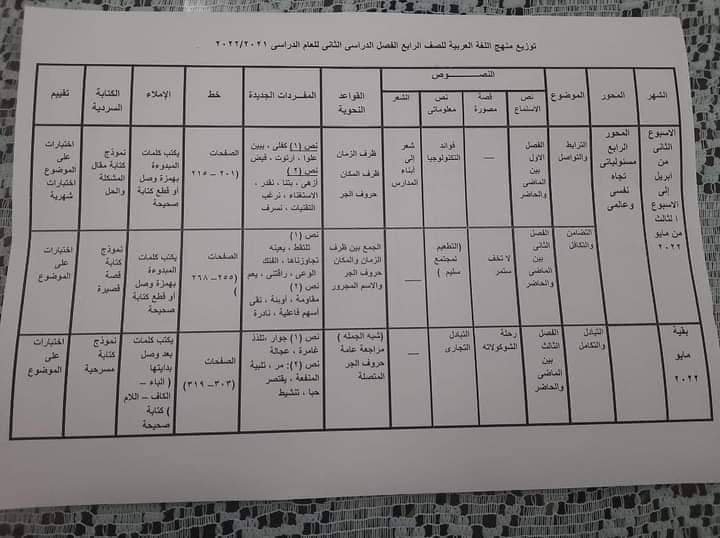 توزيع منهج اللغة العربية للصف الرابع الفصل الدراسى الثانى للعام الدراسى ٢٠٢٢/٢٠٢١
الشهر
المحور
الموضوع
النصـــــوص
نص الاستماع
قصة مصورة
نص معلوماتى
الشعر
القواعد النحوية
المفــردات الجديدة
خط
الإملاء
الكتابة السردية
تقييم
الاسبوع
الثانى
من
ابريل
إلى
الاسبوع
الثالث
من مايو
٢٠٢٢
المحور
الرابع
مسئولياتى
تجاه
نفسى
وعالمى
الترابط
والتواصل
الفصل
الاول
بين
الماضى
والحاضر
—
فوائد
التكنولوجيا
شعر
إلى
أبناء
المدارس
ظرف الزمان
ظرف المكان
حروف الجر
نص (١) كفلى ، يبين
علوا ، ارتوت ، فيض
نص (٢)
أزهى ، بتنا ، نقدر ،
الاستغناء ، نرغب
التقنيات ، نسرف
الصفحات
(٢٠١ – ٢١٥
يكتب كلمات
المبدوءة
بهمزة وصل
أو قطع كتابة
صحيحة
نموذج
كتابة مقال
المشكلة
والحل
اختبارات
على
الموضوع
اختبارات
شهرية
التضامن
والتكافل
الفصل
الثانى
بين
الماضى
والحاضر
لا تخف
ستمر
(التطعيم
لمجتمع
سليم )
—
الجمع بين ظرف
الزمان والمكان
حروف الجر
والاسم المجرور
نص (١)
تلتقط ، يعينه
تجاوزناها ، الفتك
الوعى ، رافتنى ، يعم
نص (٢)
مقاومة ، أوبئة ، تقى
أسهم فاعلية ، نادرة
الصفحات
(٢٥٥– ٢٦٨
)
يكتب كلمات
المبدوءة
بهمزة وصل
أو قطع كتابة
صحيحة
نموذج
كتابة
قصة
قصيرة
اختبارات
على
الموضوع
بقية
مايو
٢٠٢٢
التبادل
والتكامل
الفصل
الثالث
بين
الماضى
والحاضر
رحلة
الشوكولاته
التبادل
التجارى
—
(شبه الجمله )
مراجعة عامة
حروف الجر
المتصلة
نص (١) جوار ،تلذذ
غامرة ، عجالة
نص (٢): مر ، تلبية
المنفعة ، يقتصر
حبا ، تنشيط
الصفحات
(٣٠٣– ٣١٩)
يكتب كلمات
بعد وصل
بدايتها
( الباء –
الكاف – اللام
) كتابة
صحيحة
نموذج
كتابة
مسرحية
اختبارات
على
الموضوع